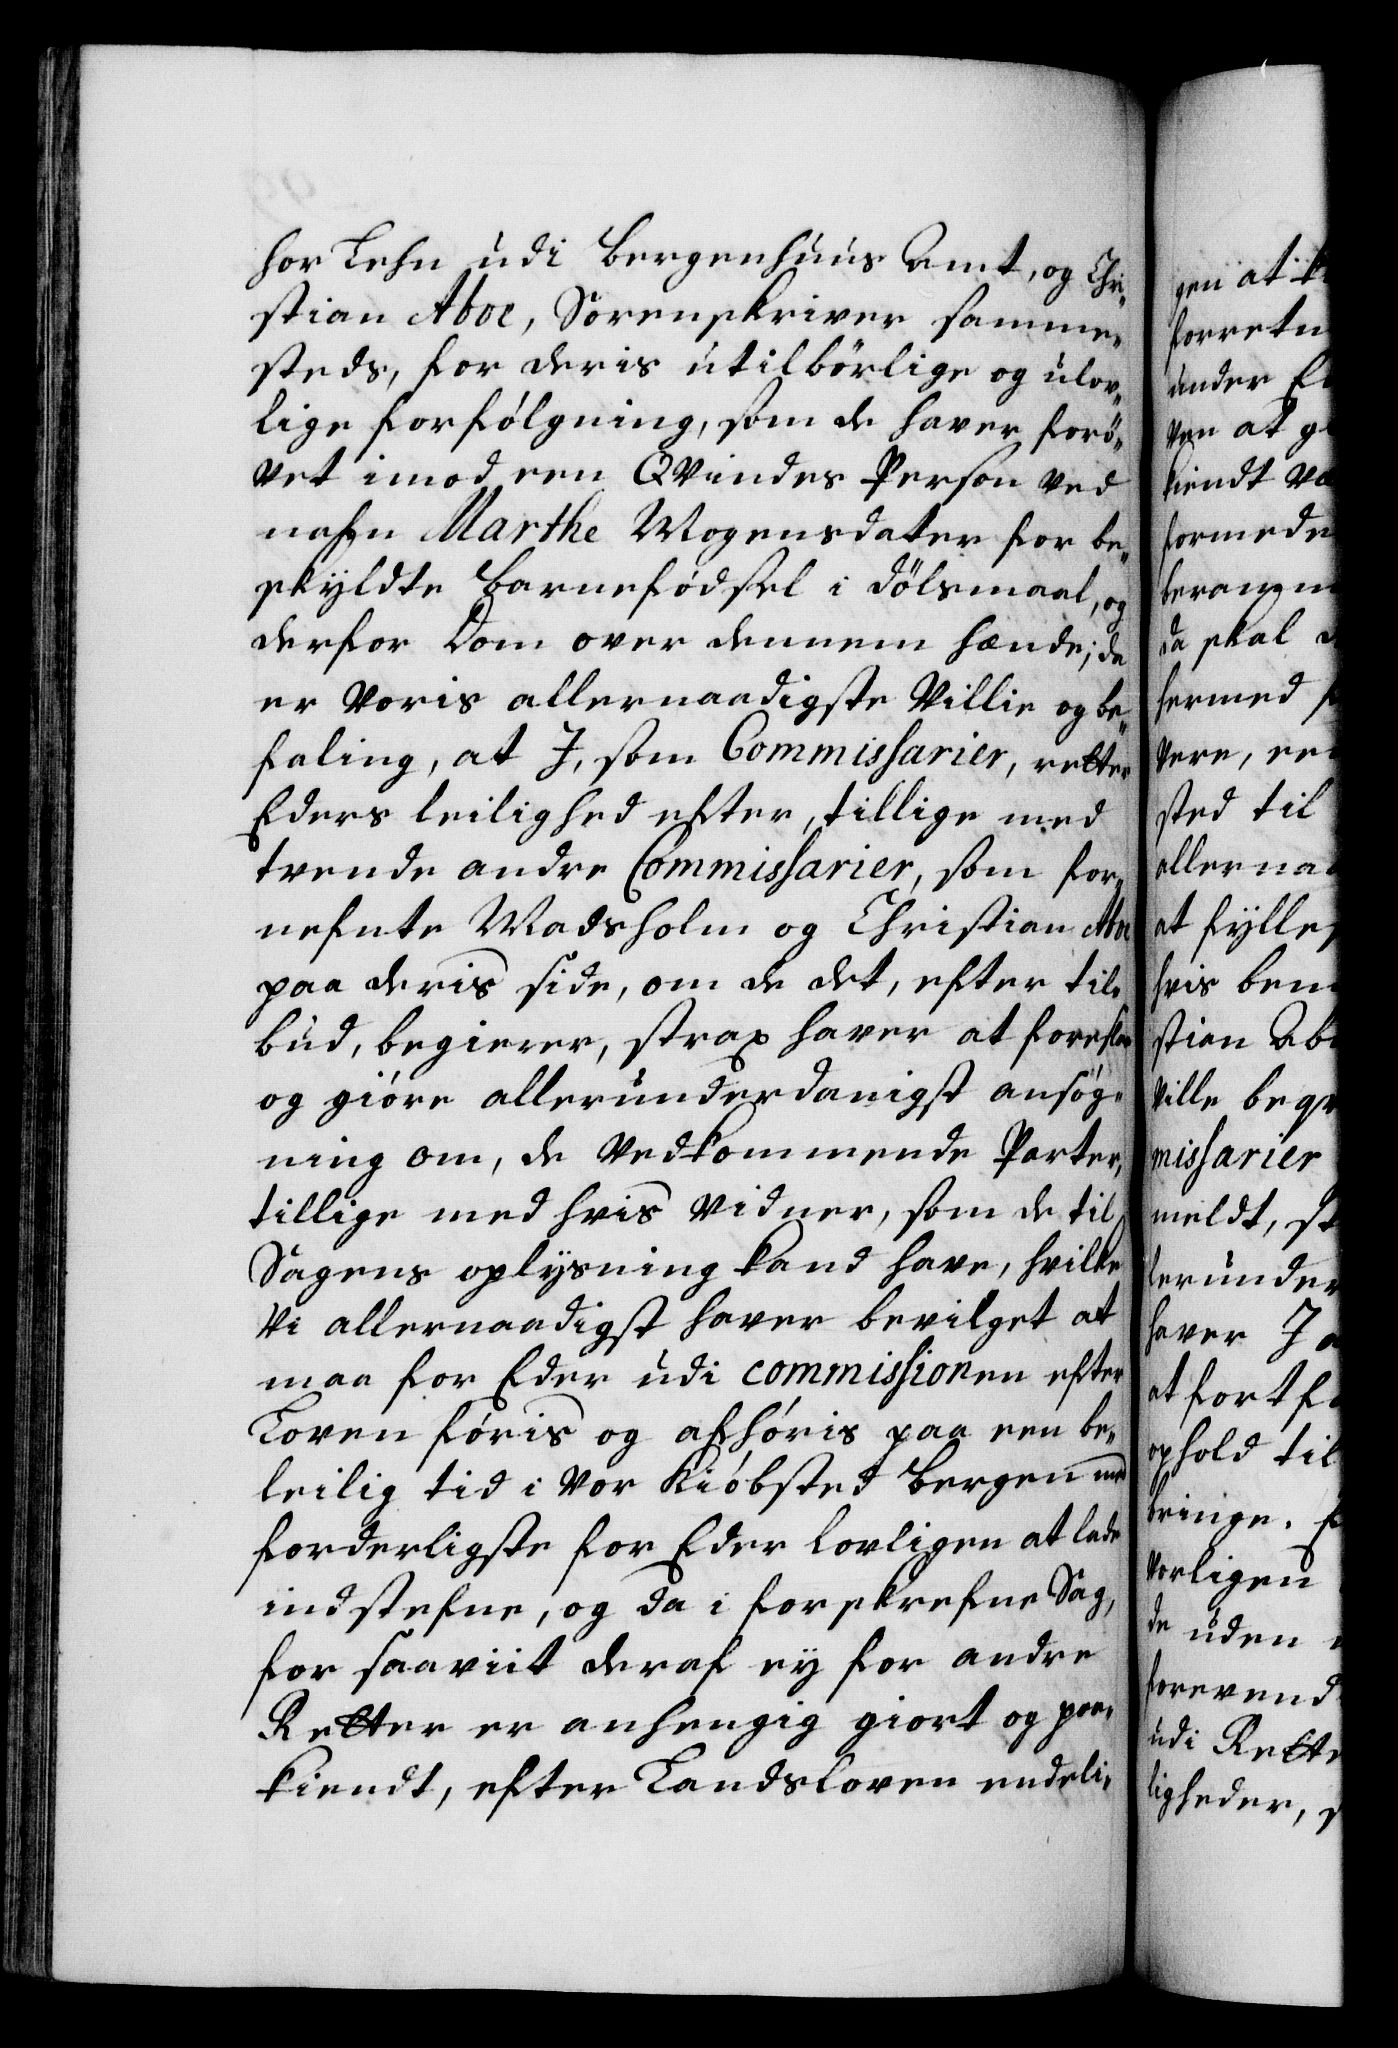 hor Lehn udi Bergenhuus Amt, og Chri-
stian Aboe, Sorenskriver samme-
steds, for deris utilbörlige og ulov-
lige forfólgning, som de haver forö-
vet imod een Qvindes Person ved
nafn Marthe Mogensdater for be-
skyldte Barnefödsel i dölsmaal, og
derfor Dom over dennem hænde; da
er Voris allernaadigste Villie og be-
faling, at I, som Commissarier, retter
Eders leilighed efter, tillige med
tvende andre Commissarier, som for-
nefnte Madsholm og Christian Aboe
paa deris side, om de det, efter til-
bud, begierer, strax haver at foreslaa
og gióre allerunderdanigst ansög-
ning om, de Vedkommende Parter,
tillige med hvis Vidner, som de til
Sagens oplysning kand have, hvilke
Vi allernaadigst haver bevilget at
maa for Eder udi commissionen efter
Loven fóris og afhóris paa een be-
leilig tid i Vor Kióbsted Bergen med
forderligste for Eder lovligen at lade
indstefne, og da i forskrefne Sag,
for saaviit deraf ey for andre
Retter er anhengig giort og paa-
kiendt, efter Landsloven endeli-
gen at k
forretn
under E
ven at g
kiendt Væ
formede
beramm
da skal
hermed
vere, een
sted til
allernaa
at fylles
hvis bem
stian Abo
ville begi
missarier
meldt, st
lerunder
haver I a
at fortfa
ophold til
bringe.
vorligen
de uden
forevend
udi Rette
ligheder, s